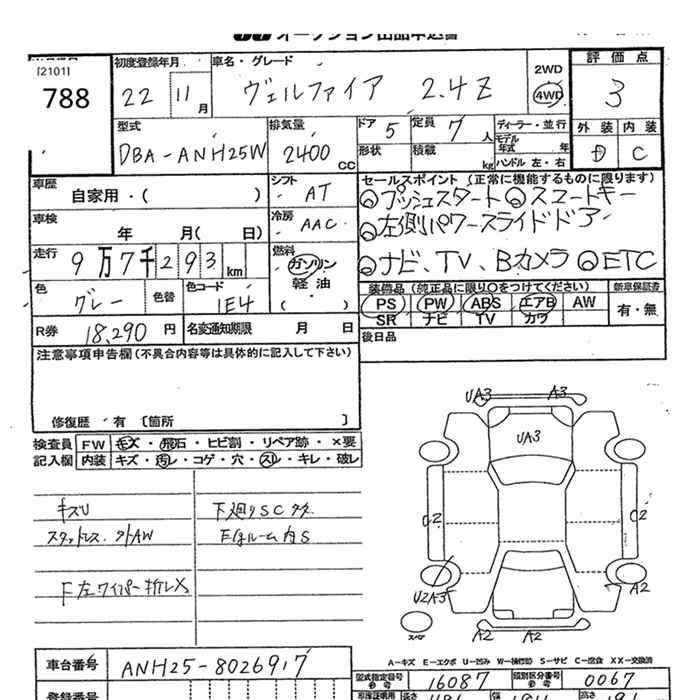 オークション出品申込書
[2101]
788
初度登録年月
22 11月
車名・グレード
ヴェルファイア 2.4Z
2WD
4WD
評価点
3
外装 内装
D C
型式
DBA-ANH25W
排気量
2400 CC
ドア 5
形状
定員 7人
積載 kg
ディーラー・並行
モデル年式 年
ハンドル 左・右
車歴
自家用・( )
シフト
AT
セールスポイント(正常に機能するものに限ります)
◎プッシュスタート ◎スマートキー
◎左側パワースライドドア
◎ナビ、TV、Bカメラ ◎ETC
車検
年 月( 日)
冷房
AAC
走行
9万7千293km
燃料
ガソリン
軽油
( )
色
グレー
色替
色コード
1E4
装備品(純正品に限り○をつけてください)
PS PW ABS エアB AW
SR ナビ TV カワ
新車保証書
有・無
R券 18,290円
名変通知期限 月 日
後日品
注意事項申告欄(不具合内容等は具体的に記入して下さい)
修復歴・有〔箇所 〕
検査員記入欄
FW キズ・飛石・ヒビ割・リペア跡・×要
内装 キズ・汚レ・コゲ・穴・スレ・キレ・破レ
キズU
スタットレス.外AW
F左ワイパー折レX
下廻りSC
ルーム内S
UA3 A3
UA3
U2 U2
U2A3 A2
スペア
A2 A2
A-キズ E-エクボ U-凹み W-補修跡 S-サビ C-腐食 XX-交換済
車台番号
ANH25-8026917
型式指定番号
16087
類別区分番号
0067
登録番号